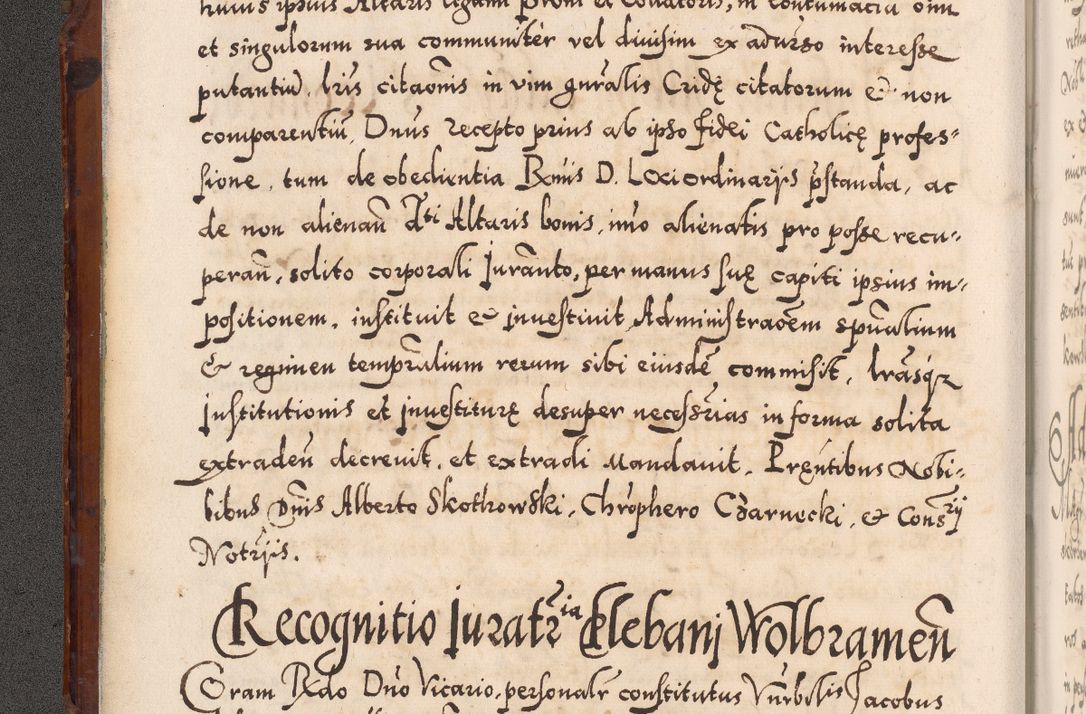 huius ipsius Altaris legam̃ proni et Collatoris, in contumacia oim̃
et singulorum sua communitèr vel diuisim ex aduerso interesse
putantiũ, lr̃is citaõnis in vim gñralis Cridę citatorum & non
comparentiũ, Dnũs recepto prius ab ipso fidei Catholicę profes⸗
sione, tum de obedientia Rm̃is D. Loci ordinarijs p̃standa, ac
de non alienañ d̃ti Altaris bonis, im̃o alienatis pro posse recu⸗
perañ, solito corporali Jurañto, per manus suę capiti ipsius im⸗
positionem, instituit & jnuestiuit, Administraõem spũalium
& regimen tempr̃alium rerum sibi eiusdẽ commisit, lr̃asq̃z
Justitutionis et jnuestiturę desuper necess̃rias in forma solita
extradeñ decreuit, et extradi Mandauit. Preñtibus Nobi⸗
libus Dñis Alberto Skotkowski, Chr̃ophero Czarnecki, & Consr̃ij
Notr̃ijs.
Recognitio Juratr̃ia Plebanj Wolbrameñ
Coram Rdo Dño Vicario, personalr̃ constitutus Vnr̃bilis Jacobus